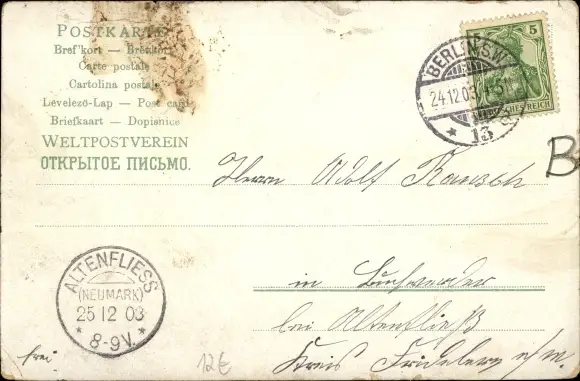 POSTKARTE
Bref'kort — Brevkort
Carte postale
Cartolina postale
Levelező-Lap — Post card
Briefkaart — Dopisnice
WELTPOSTVEREIN
ОТКРЫТОЕ ПИСЬМО.
5
DEUTSCHES REICH
BERLIN SW
24.12.03
* 13
Herrn Adolf Rausch
B
in Buchwerder
bei Altenfließ
Kreis Friedeberg n/m.
ALTENFLIESS
(NEUMARK)
25 12 03
* 8-9V. *
frei
12€